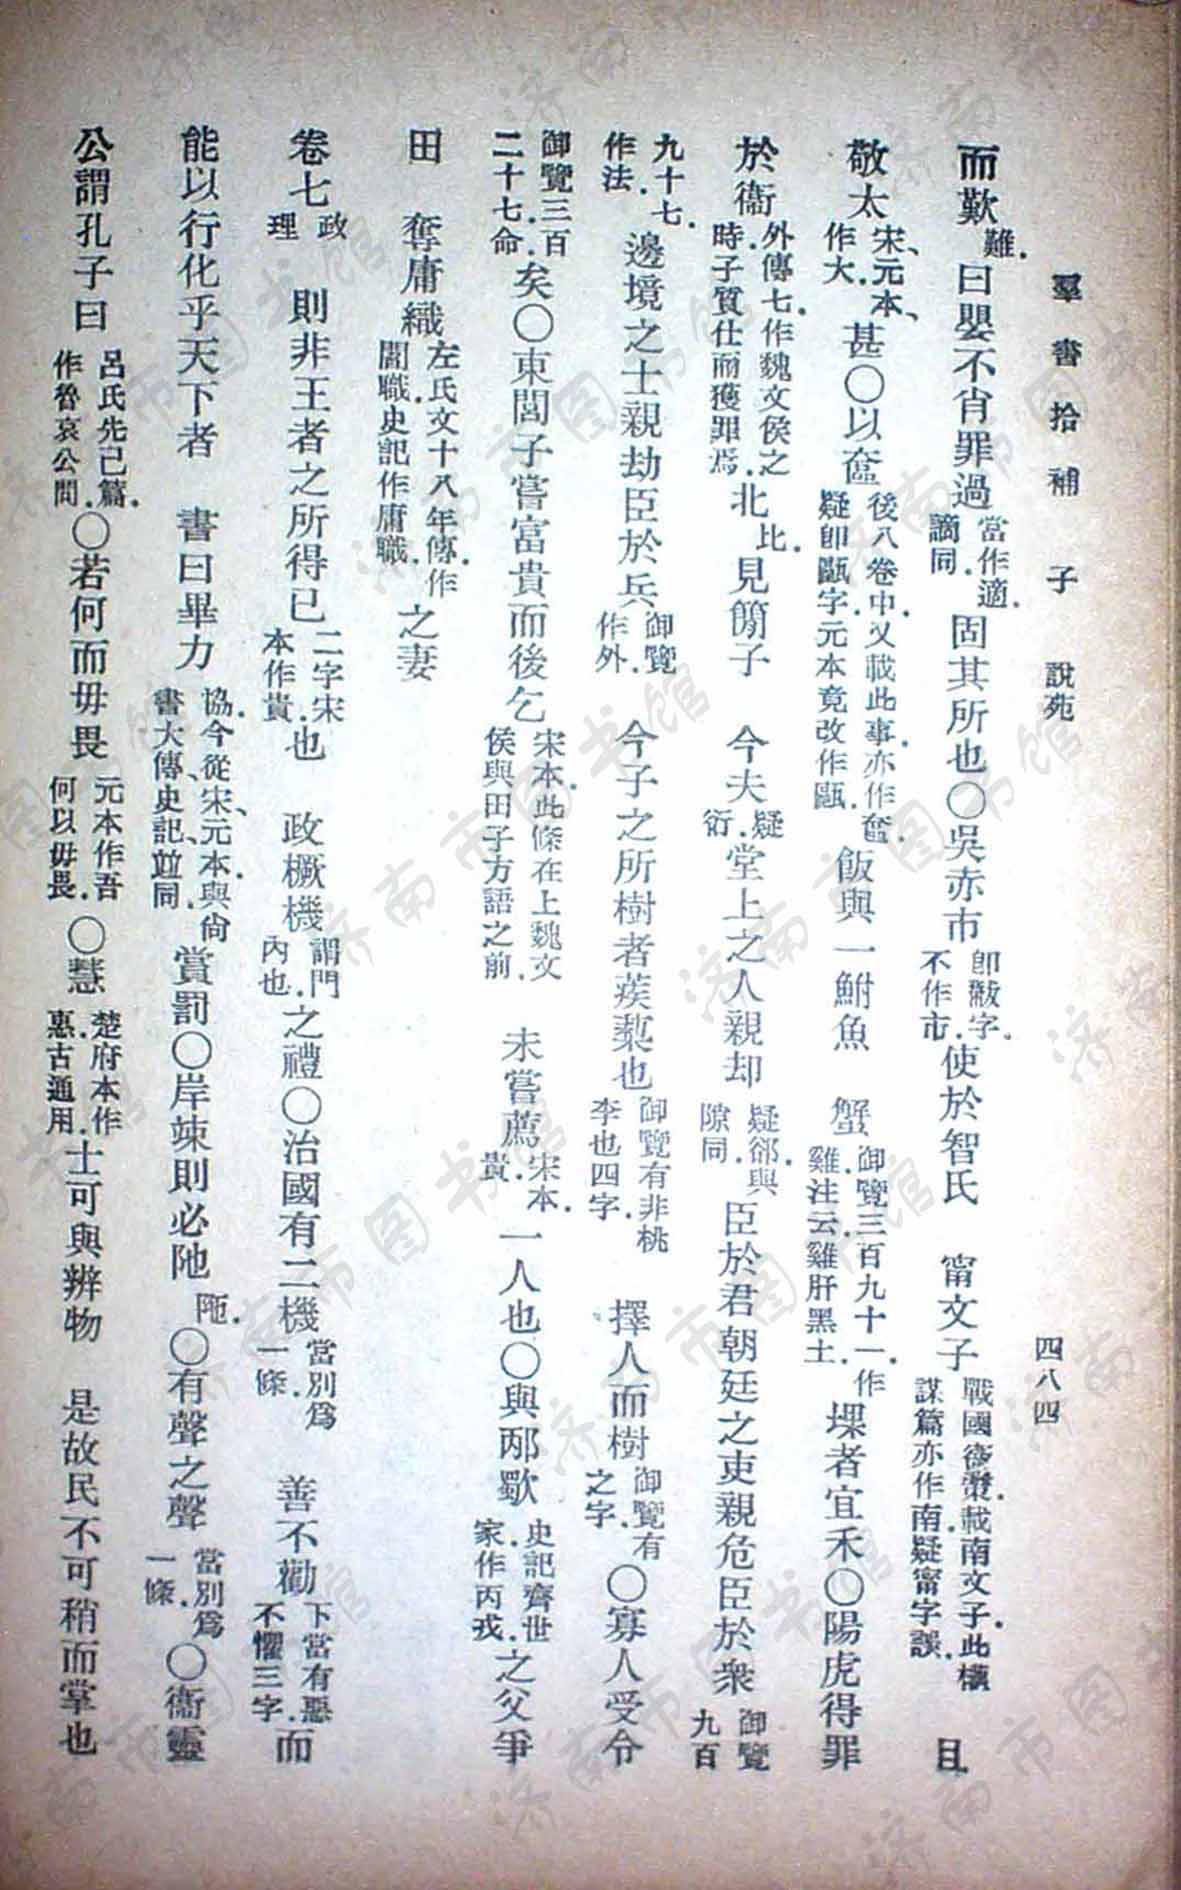 羣書拾補 子 說苑 四八四
而歎難.曰嬰不肖罪過當作適.謫同.固其所也〇吳赤市卽黻字.不作市.使於智氏 甯文子戰國衞策.載南文子.此權謀篇亦作南.疑甯字誤. 且
敬太宋、元本、作大.甚〇以奩後八卷中.又載此事.亦作奩.疑卽甌字.元本竟改作甌.飯與一鮒魚 蟹御覽三百九十一.作雞.注云.雞肝黑土.堁者宜禾〇陽虎得罪
於衞外傳七.作魏文侯之時.子質仕而獲罪焉.北比.見簡子 今夫疑衍.堂上之人親却疑郤.與隙同.臣於君朝廷之吏親危臣於衆御覽九百
九十七.作法.邊境之士親劫臣於兵御覽作外.今子之所樹者蒺蔾也御覽有非桃李也四字. 擇人而樹御覽有之字.〇寡人受令
御覽三百二十七.命.矣〇東閭子嘗富貴而後乞宋本.此條在上魏文侯與田子方語之前. 未嘗薦宋本.貴.一人也〇與邴歜史記齊世家作丙戎.之父爭
田 奪庸織左氏文十八年傳.作閻職.史記作庸職.之妻
卷七政理 則非王者之所得已二字宋本作貴.也 政橛機謂門內也.之禮〇治國有二機當別爲一條. 善不勸下當有惡不懼三字.而
能以行化乎天下者 書曰畢力協.今從宋、元本.與尙書大傳、史記並同.賞罰〇岸竦則必阤陁.〇有聲之聲當別爲一條.〇衞靈
公謂孔子曰呂氏先己篇.作魯哀公問.〇若何而毋畏元本作吾何以毋畏.〇慧楚府本作惠.古通用.士可與辨物 是故民不可稍而掌也